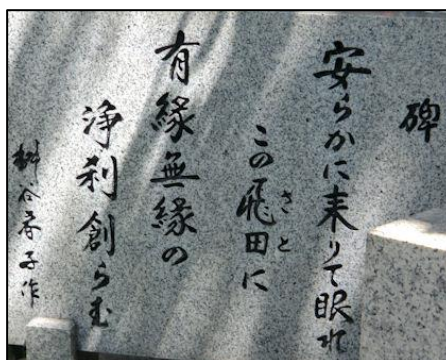 碑
安らかに来りて眠れ
この飛田に
さと
有縁無縁の
浄刹創らむ
桝谷春子作